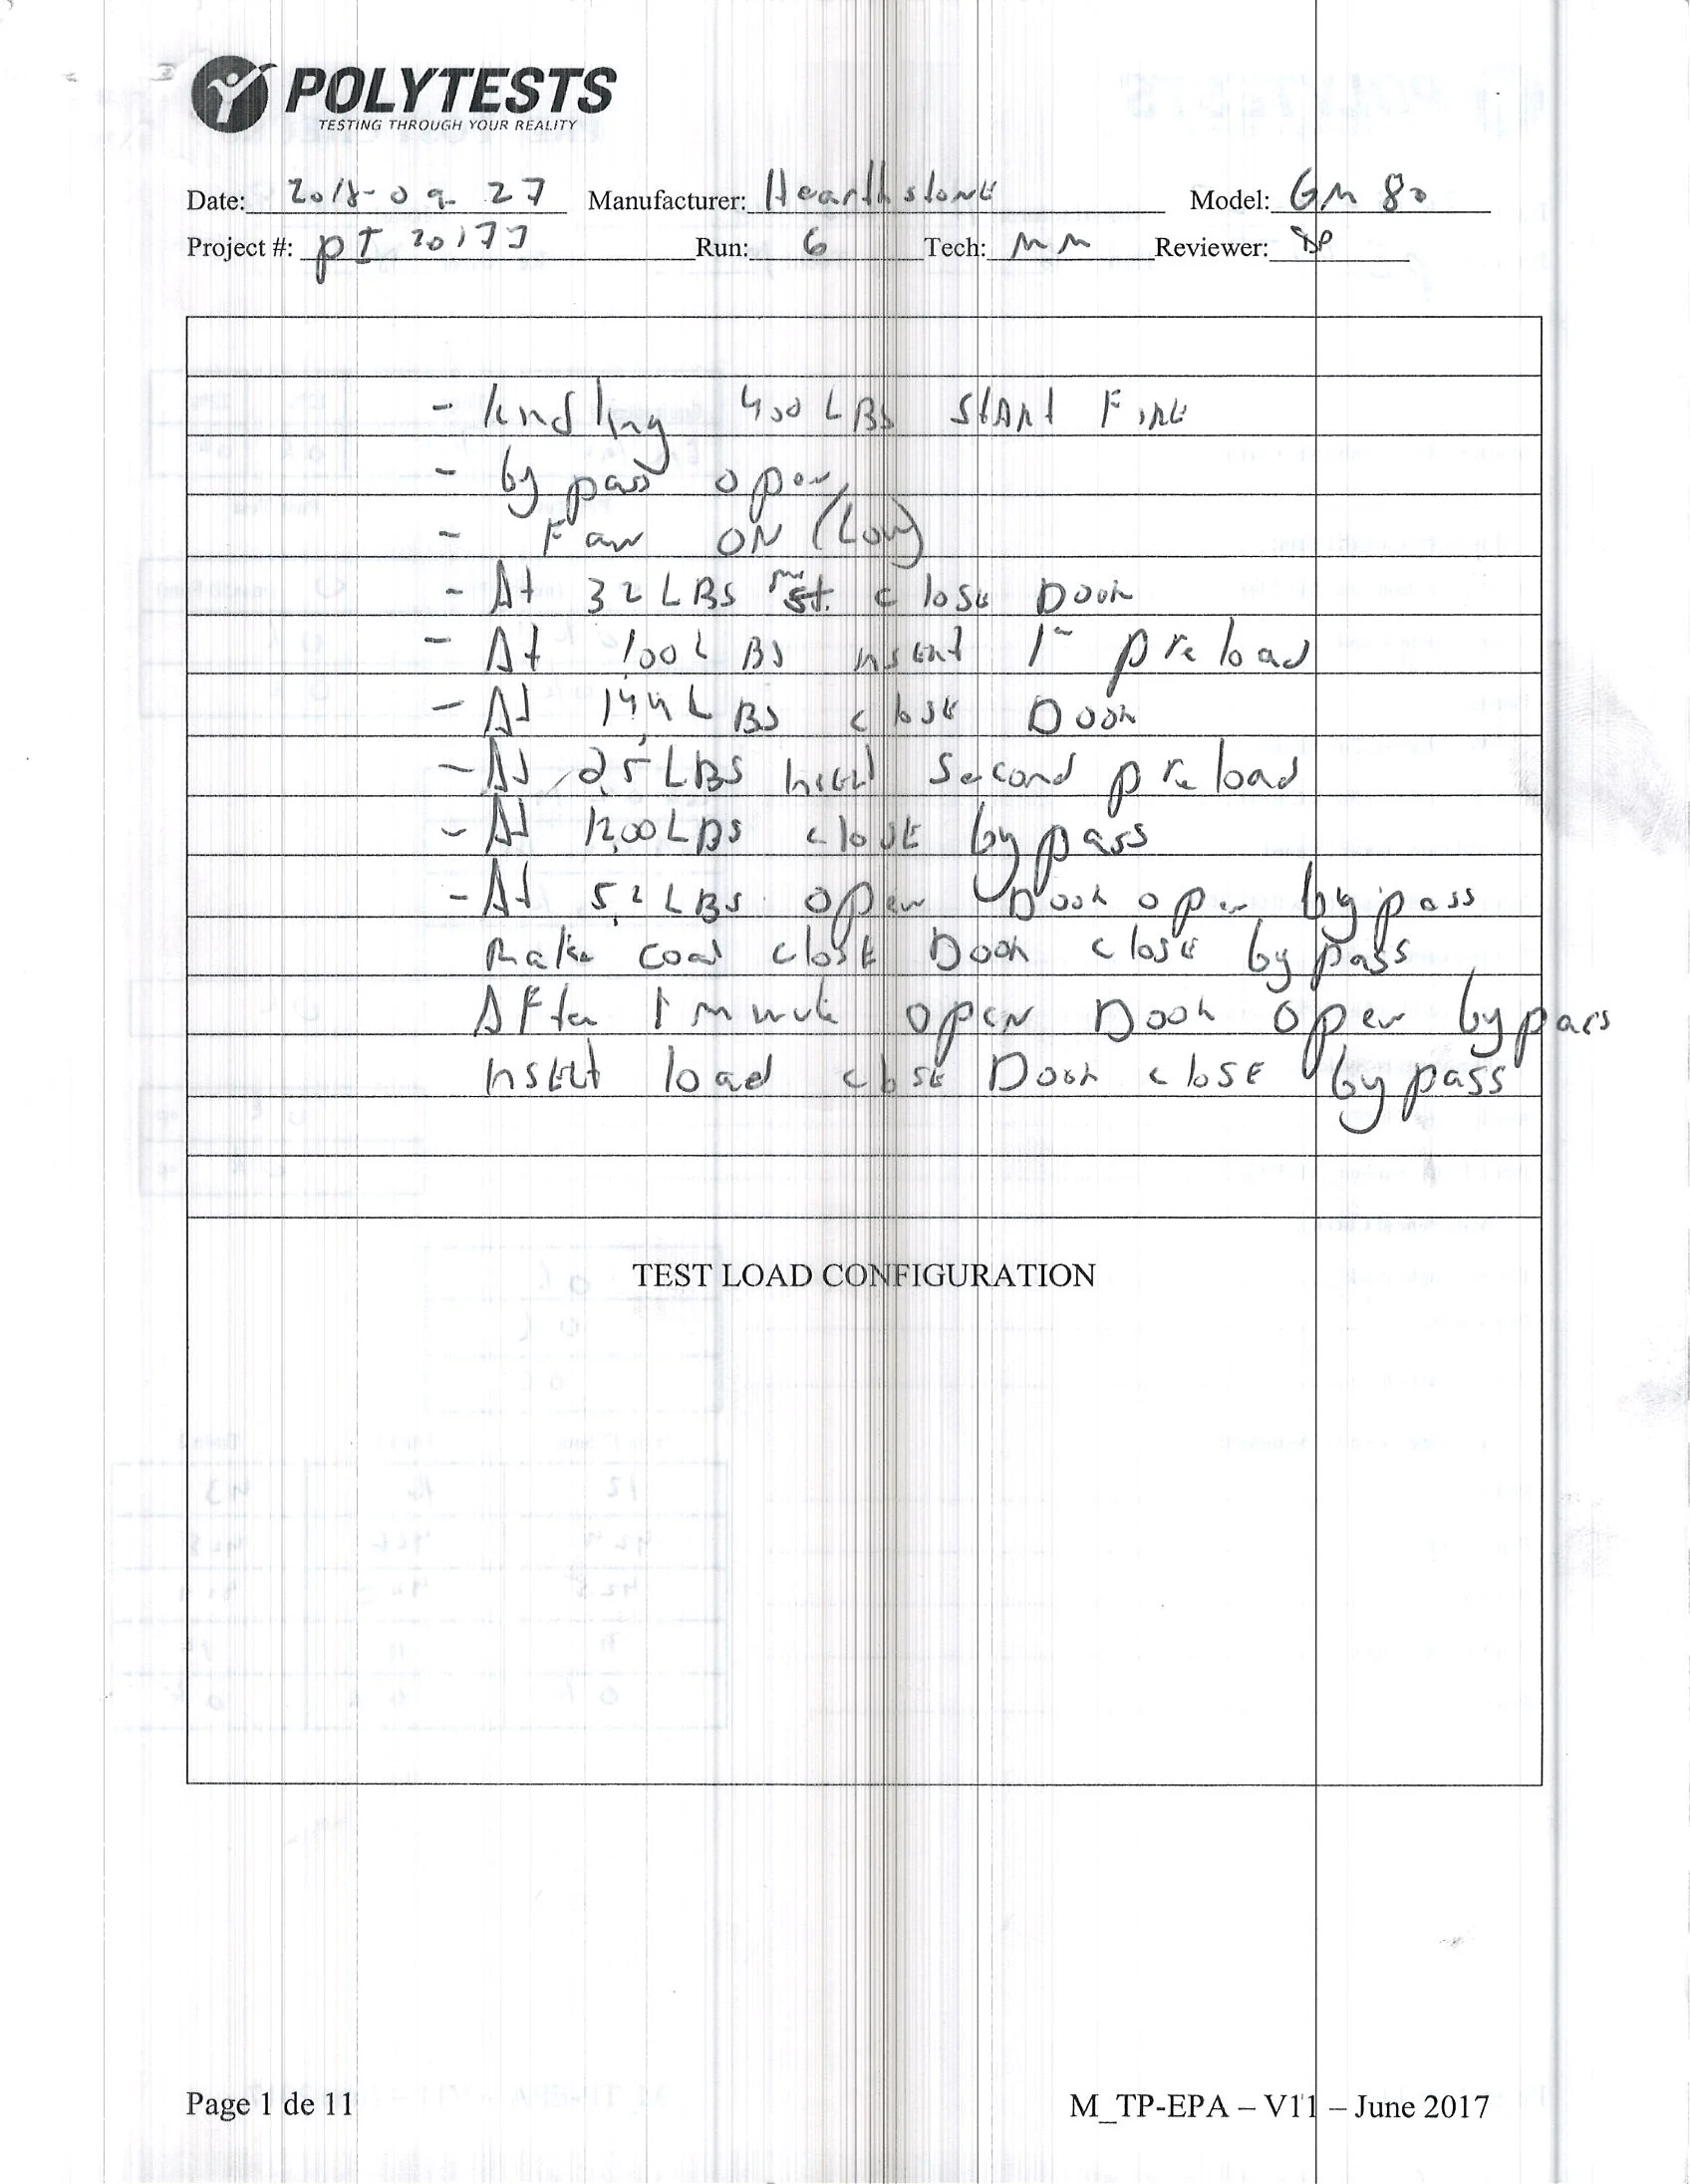 POLYTESTS
TESTING THROUGH YOUR REALITY
Date: 2018-09-27 Manufacturer: Hearthstone Model: GM 80
Project #: PI 20177 Run: 6 Tech: MM Reviewer:
- kindling 4,00 LBS START FIRE
- by pass open
- Fan ON (Low)
- At 32 LBS close Door
- At 1,00 LBS insert 1 preload
- At LBS close Door
- At 2,5 LBS insert second preload
- At 12,00 LBS close by pass
- At 5,2 LBS open Door open by pass
Rake coal close Door close by pass
After 1 minute open Door open by pass
insert load close Door close by pass
TEST LOAD CONFIGURATION
Page 1 de 11
M_TP-EPA – V11 – June 2017